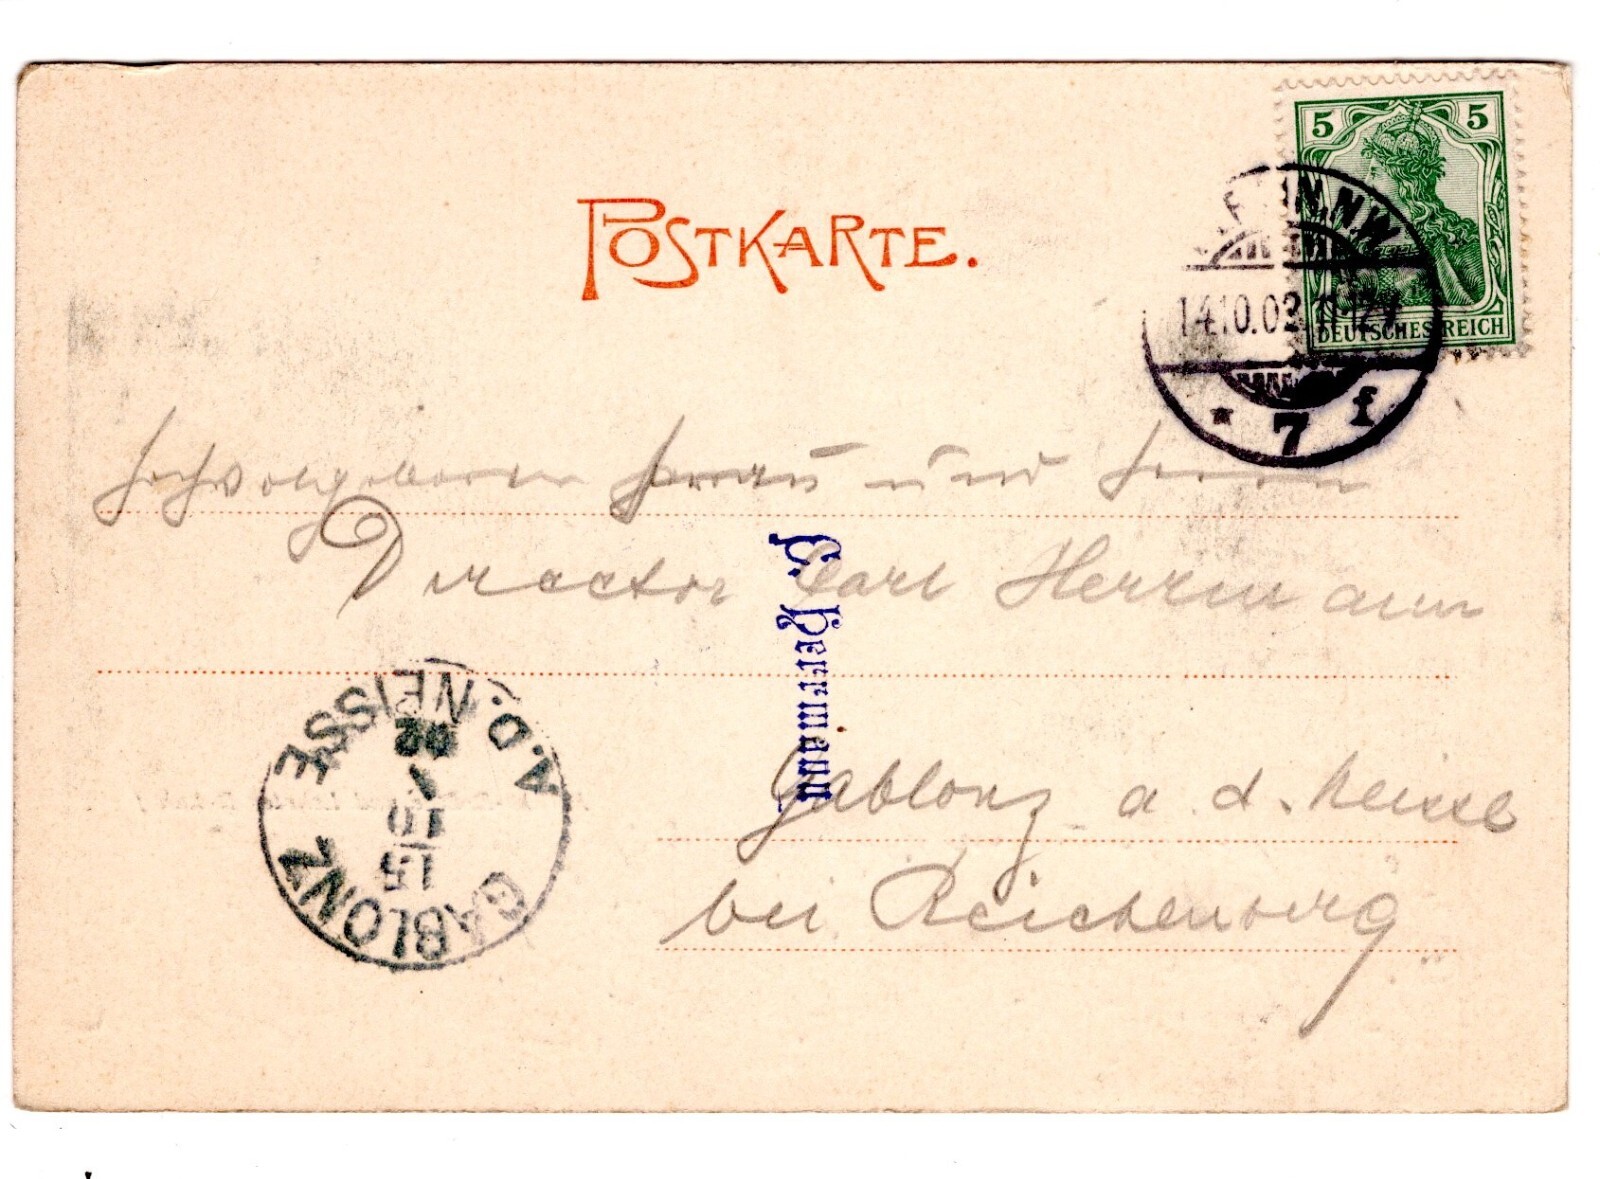 POSTKARTE.
5 5
DEUTSCHES REICH
BERLIN.N.W.
14.10.02.
* 7 f
Hochwolgeboren Frau und Herrn
Director Carl Herrmann
C. Herrmann
Gablonz a. d. Neisse
bei Reichenberg
GABLONZ A.D. NEISSE
15
10
02